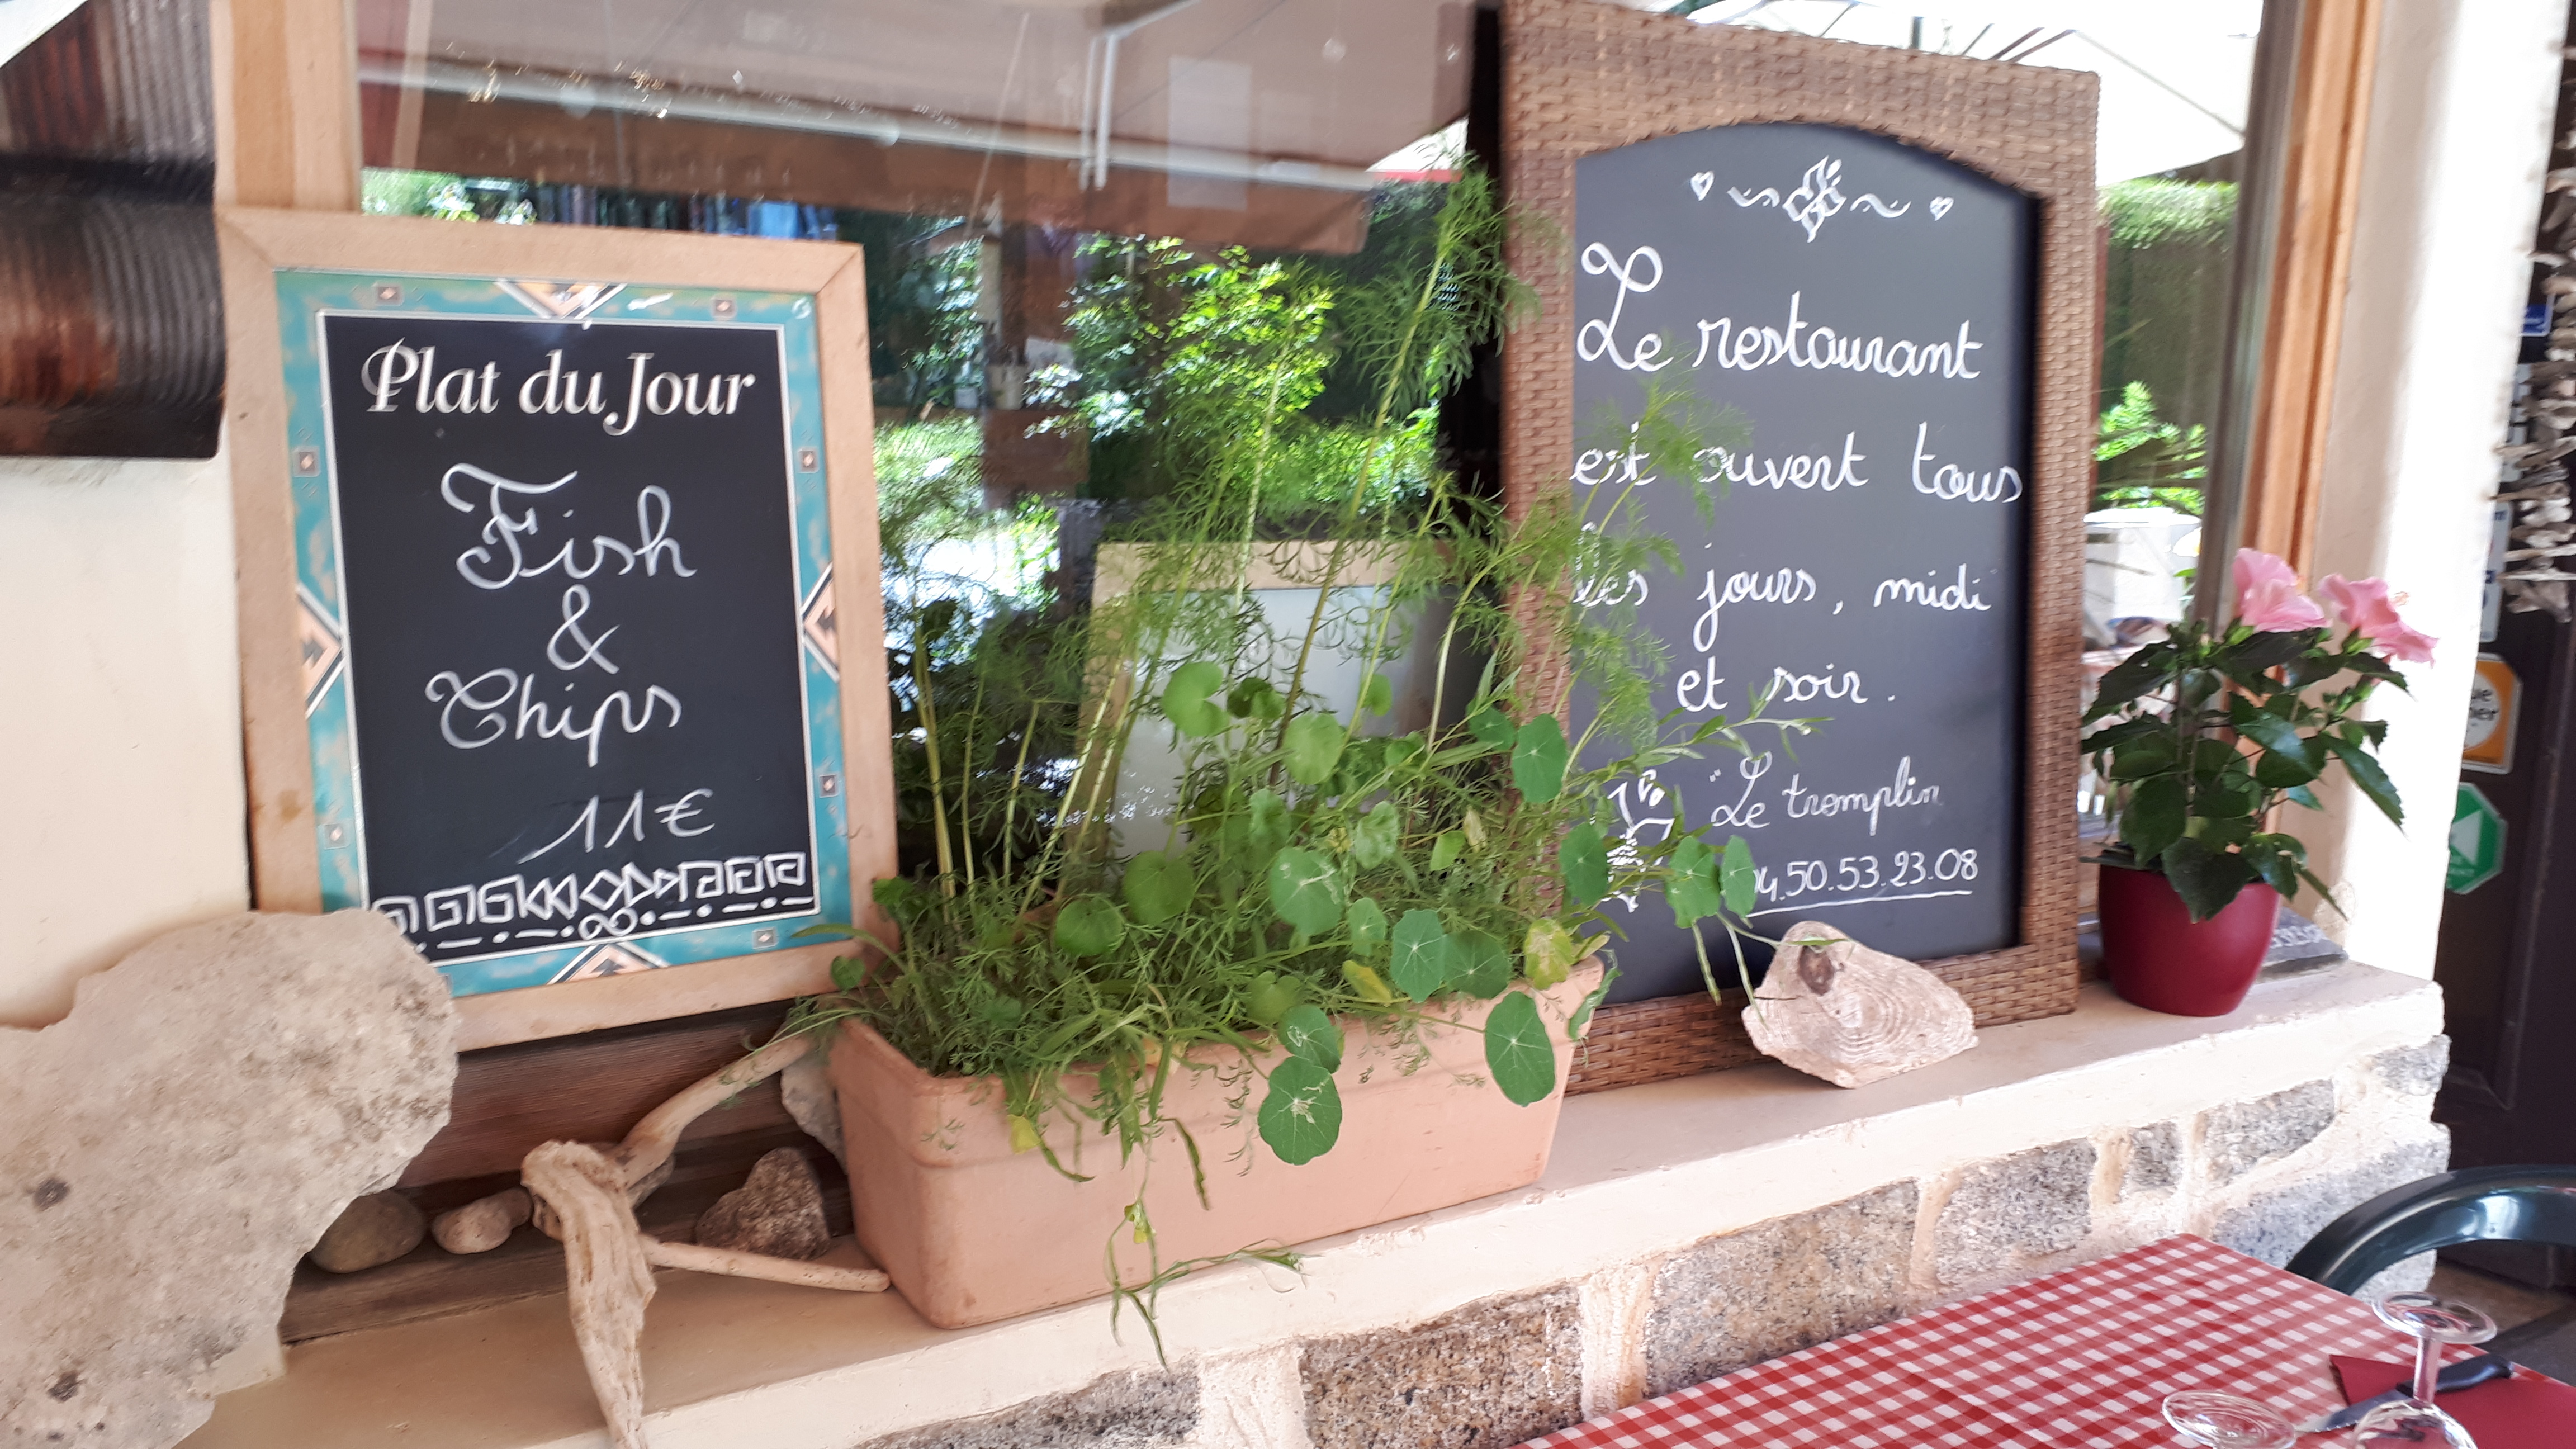 Plat du Jour
Fish
&
Chips
11€
Le restaurant
est ouvert tous
les jours, midi
et soir.
"Le tremplin
04.50.53.23.08